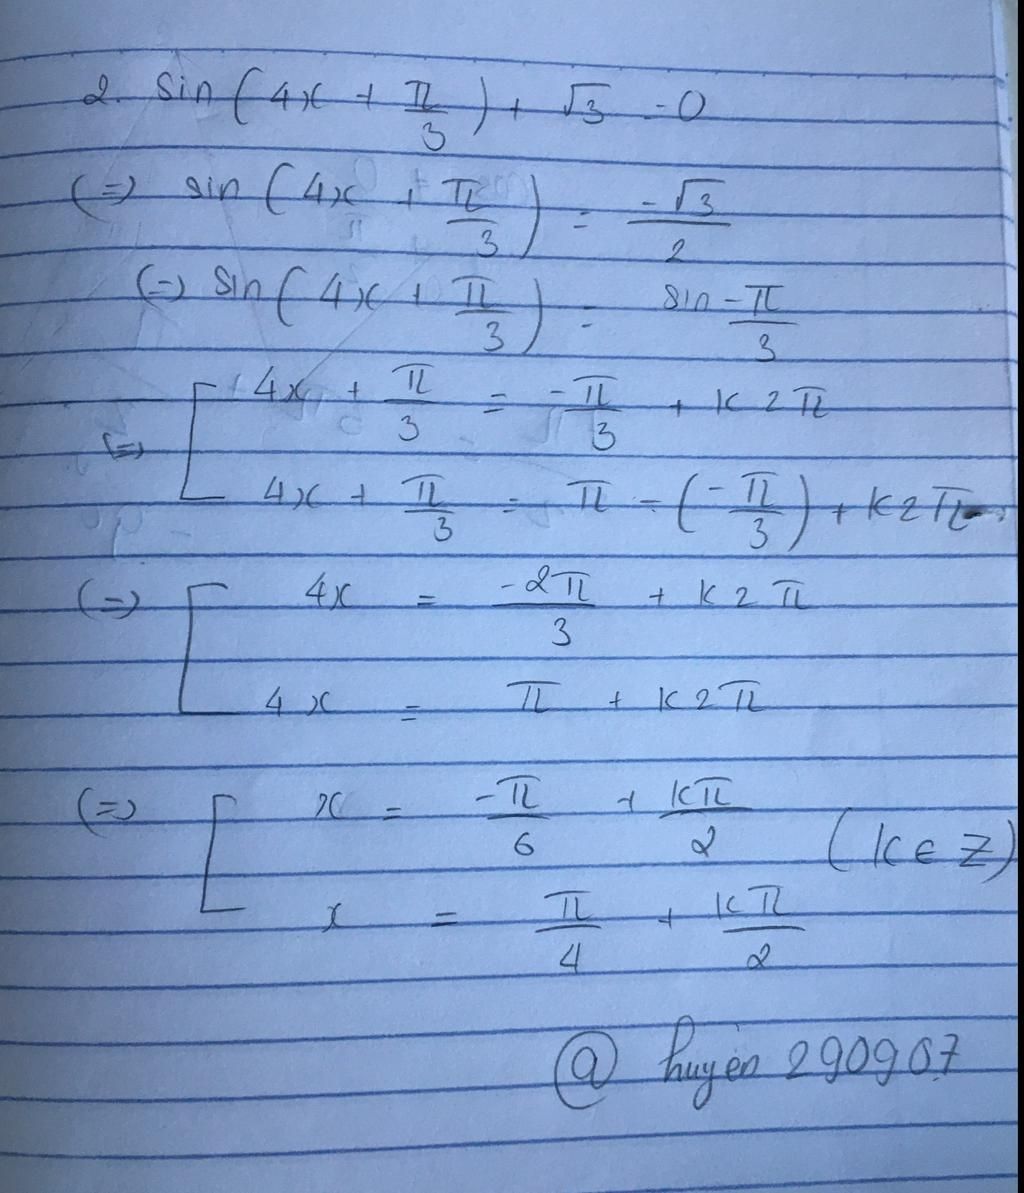 2. sin(4x + π/3) + √3 = 0
(=) sin(4x + π/3) = -√3/2
(=) sin(4x + π/3) = sin -π/3
(=) [ 4x + π/3 = -π/3 + k2π
4x + π/3 = π - (-π/3) + k2π
(=) [ 4x = -2π/3 + k2π
4x = π + k2π
(=) [ x = -π/6 + kπ/2
(k ∈ Z)
x = π/4 + kπ/2
@ huyen 290907